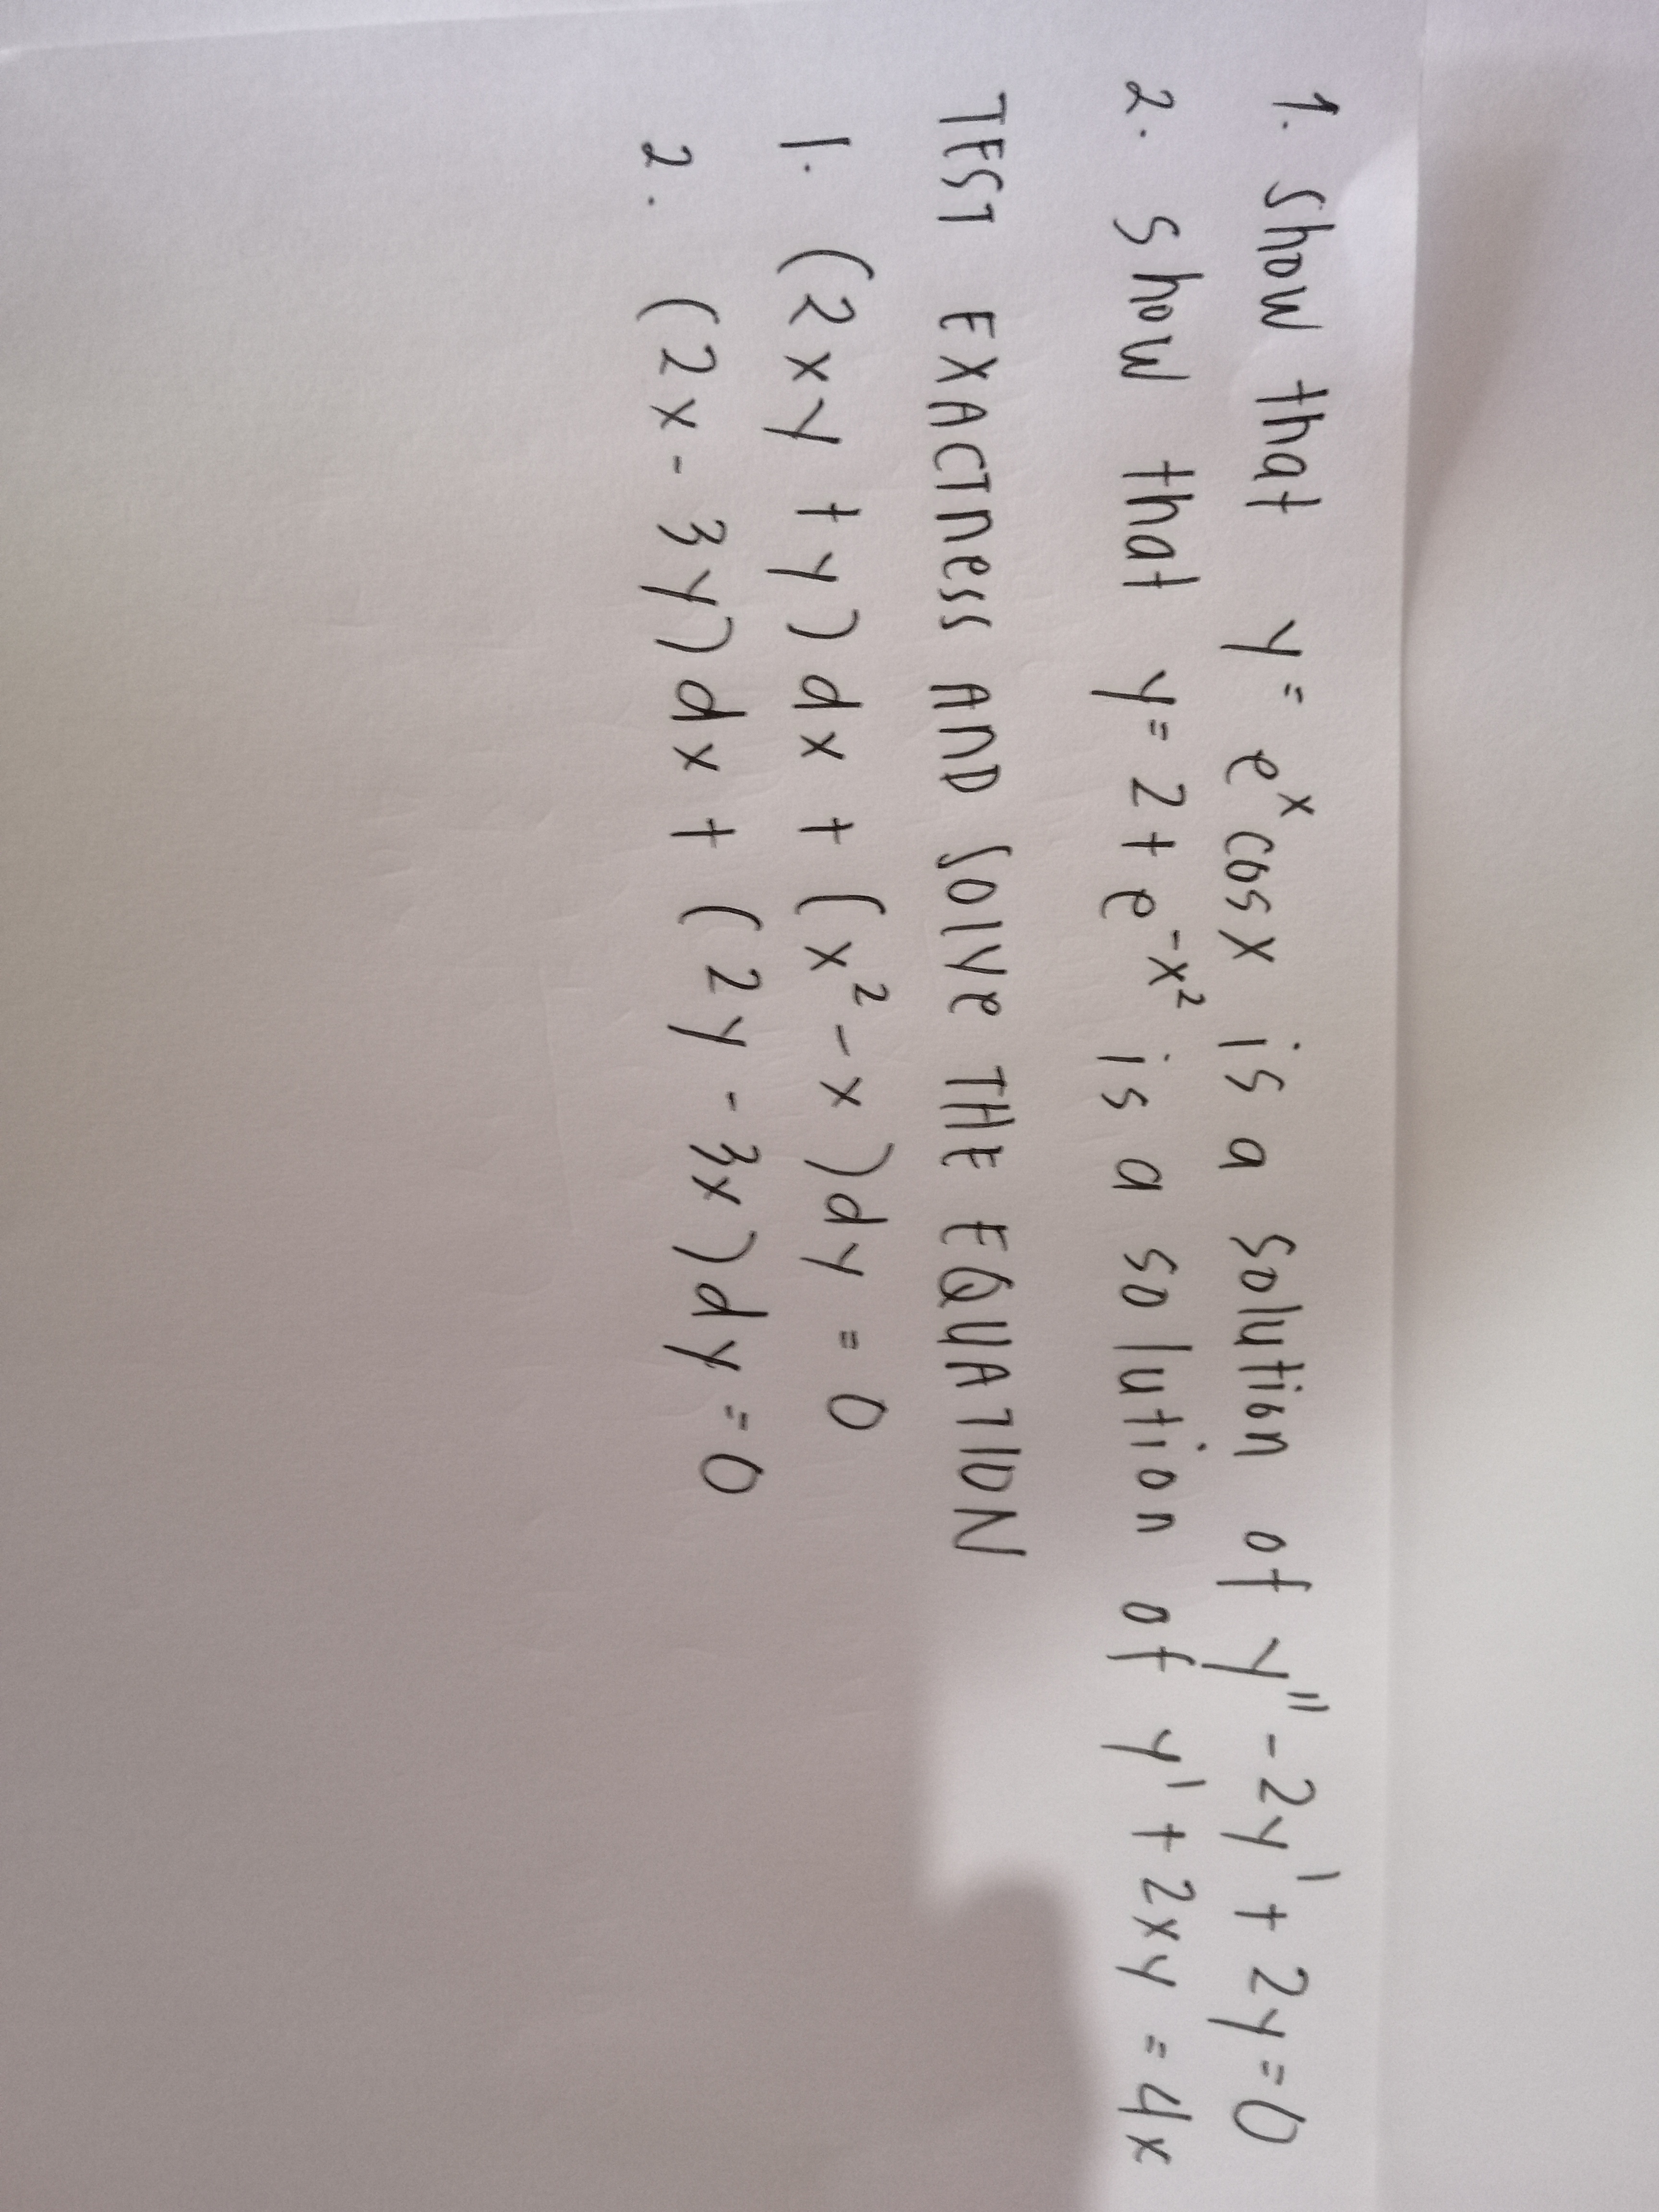 1. Show that y = eˣ cos x is a solution of y'' - 2y' + 2y = 0
2. Show that y = 2 + e^-x² is a solution of y' + 2xy = 4x
TEST EXACTness AND SOlVe THE EQUATION
1. (2xy + y) dx + (x² - x) dy = 0
2. (2x - 3y) dx + (2y - 3x) dy = 0